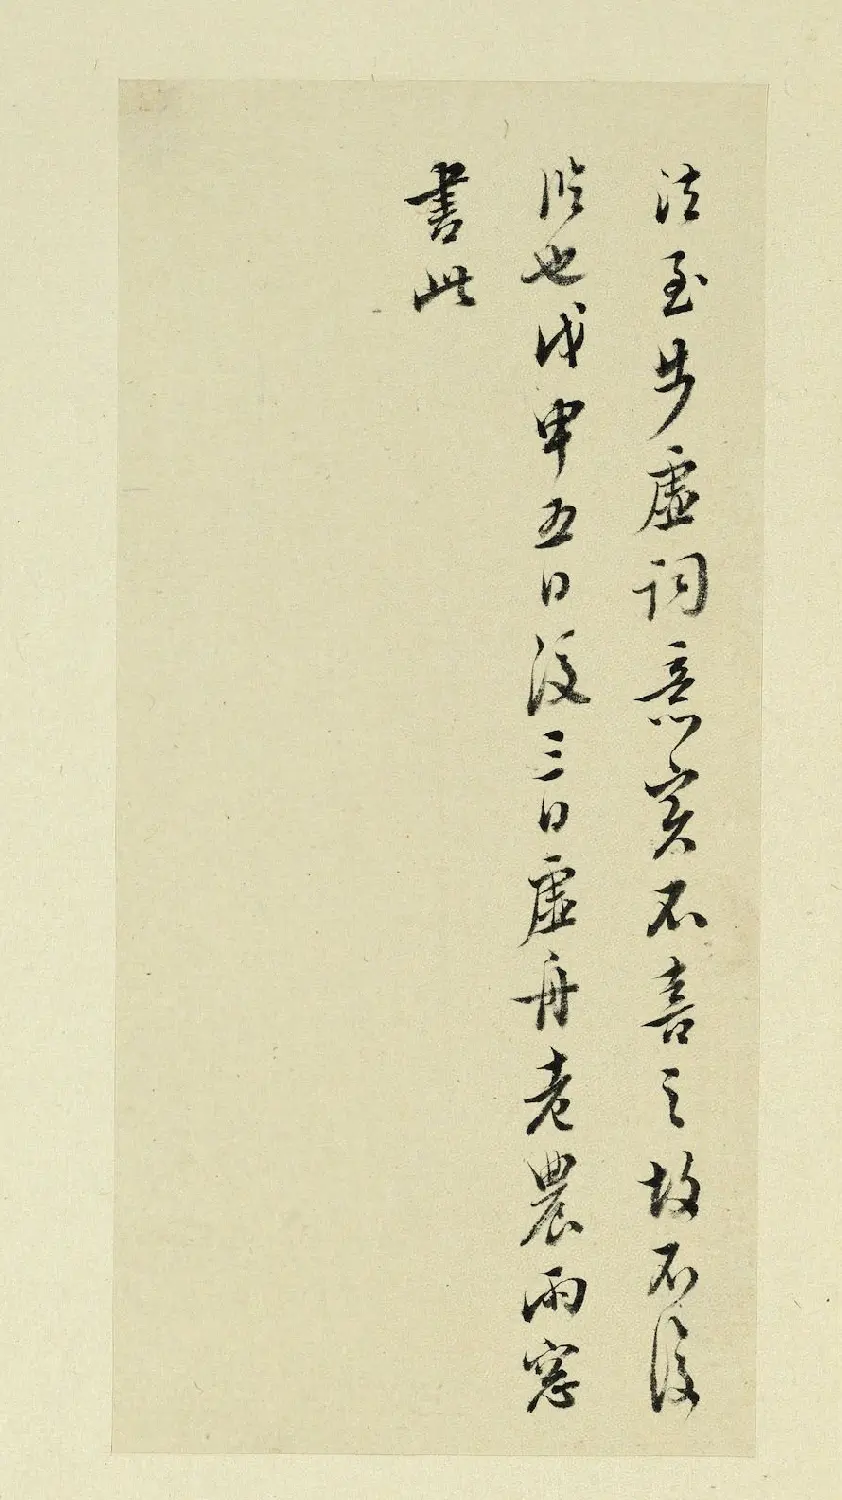 法至步虛詞意實不喜之故不復
臨也戊申五日後三日虛舟老農雨窓
書此